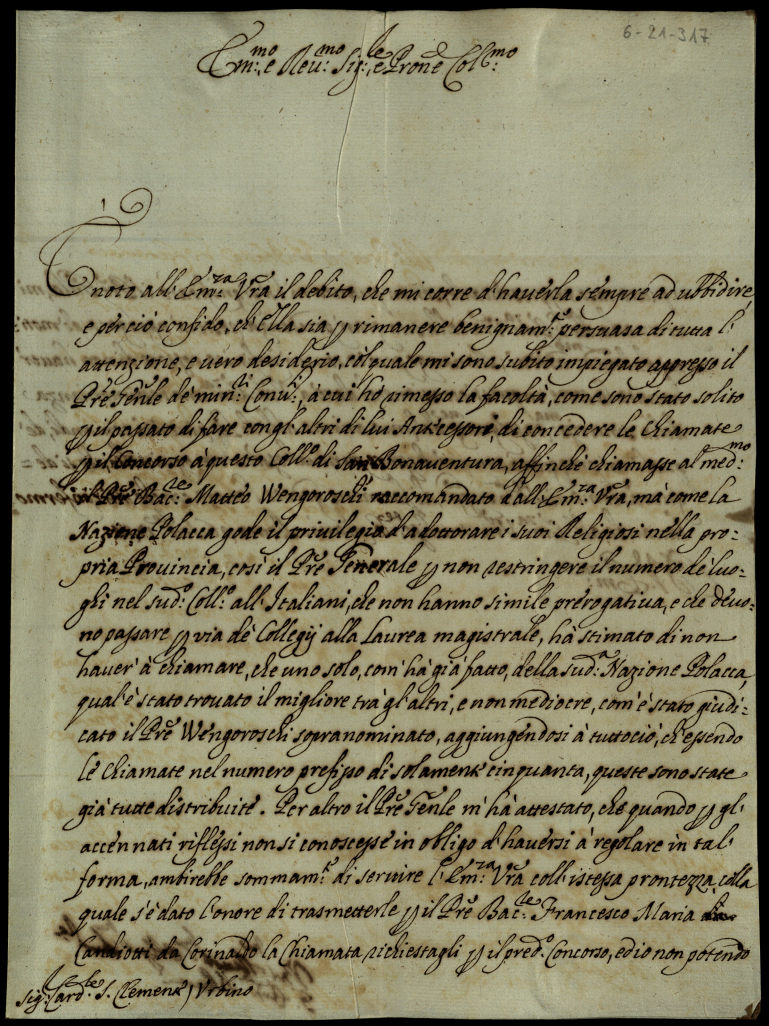 6-21-317
Em:mo e Rev:mo Sig:re e Prone Col:mo
È noto all'Em:za Vra il debito, che mi corre d'haverla sempre ad ubbidire,
e perciò confido, ch'Ella sia p rimanere benignam:e persuasa di tutta l'
attenzione, e vero desiderio, col quale mi sono subito impiegato appresso il
Pre Genle de' min:ri Conv:li, à cui hò rimesso la facoltà, come sono stato solito
p il passato di fare con gl'altri di lui Antecessori, di concedere le Chiamate
p il Concorso à questo Coll:o di San Bonaventura, affinche chiamasse al med:mo
il Pre Bac:re Matteo Wengoroschi raccomandato dall'Em:za Vra, mà come la
Nazione Polacca gode il privilegio d'adottorare i suoi Religiosi nella pro=
pria Provincia, così il Pre Generale p non restringere il numero de' luo=
ghi nel sud:o Coll:o all'Italiani, che non hanno simile prerogativa, e che devo=
no passare p via de' Collegij alla Laurea magistrale, hà stimato di non
haver' à chiamare, che uno solo, com' hà già fatto, della sud:a Nazione Polacca,
qual'è stato trovato il migliore trà gl'altri, e non mediocre, com'è stato giudi=
cato il Pre Wengoroschi sopranominato, aggiungendosi à tuttociò, ch'essendo
le Chiamate nel numero prefisso di solamente cinquanta, queste sono state
già tutte distribuite. Per altro il Pre Genle m'hà attestato, che quando p gl'
accennati riflessi non si conoscesse in obligo d'haversi à regolare in tal
forma, ambirebbe sommam:e di servire l'Em:za Vra coll'istessa prontezza, colla
quale s'è dato l'onore di trasmetterle p il Pre Bac:re Francesco Maria
Candiotti da Corinaldo la Chiamata richiestagli p il pred:o Concorso, ed io non potendo
Sig:r Card:le S. Clemente) Urbino